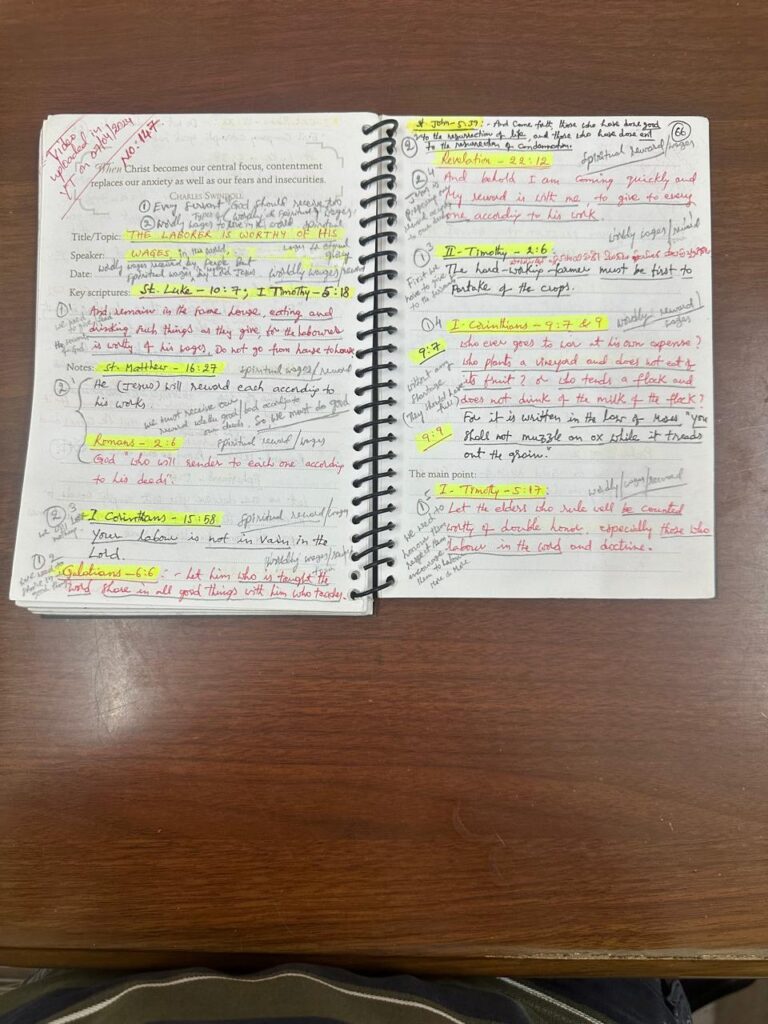 Video
uploaded in
VT on 02/04/2024
NO: 147
When Christ becomes our central focus, contentment
replaces our anxiety as well as our fears and insecurities.
CHARLES SWINDOLL
① Every servant God should receive two
Types of worldly & spiritual wages.
② Worldly wages to live in the world spiritual
Title/Topic: THE LABORER IS WORTHY OF HIS
Speaker: WAGES in the world,
wages in eternal glory
worldly wages received by people but
Date: spiritual wages by Lord Jesus. worldly wages/reward
Key scriptures: St. Luke - 10:7; I Timothy - 5:18
① And remain in the same house, eating and
drinking such things as they give, for the labourer
is worthy of his wages. Do not go from house to house
Notes: St. Matthew - 16:27 spiritual wages/reward
② He (Jesus) will reward each according to
his works.
we must receive our
reward while good/bad according to
our deeds. So we must do good
Romans - 2:6 spiritual reward/wages
God "who will render to each one according
to his deeds".
② 3 I Corinthians - 15:58 spiritual reward/wages
Your labour is not in vain in the
Lord.
① 2 worldly wages
Galatians - 6:6 :- Let him who is taught the
word share in all good things with him who teaches.
St. John - 5:29 :- And come forth those who have done good
to the resurrection of life, and those who have done evil
to the resurrection of condemnation.
66
②
Revelation - 22:12 spiritual reward/wages
② 4 And behold I am coming quickly and
My reward is with me, to give to every
one according to his work.
worldly wages/reward
① 3 II - Timothy - 2:6
First we have to give to
The hard-working farmer must be first to
partake of the crops.
① 4 I Corinthians - 9:7 & 9 worldly reward/wages
9:7 who ever goes to war at his own expense?
who plants a vineyard and does not eat of
its fruit? or who tends a flock and
does not drink of the milk of the flock?
without any
(They should have
9:9 For it is written in the law of Moses "you
shall not muzzle an ox while it treads
out the grain."
The main point:
worldly/wages/reward
① 5 I - Timothy - 5:17 :
Let the elders who rule well be counted
worthy of double honor, especially those who
labour in the word and doctrine.
we need to
honour them
respect them
encourage
them to labour
more & more